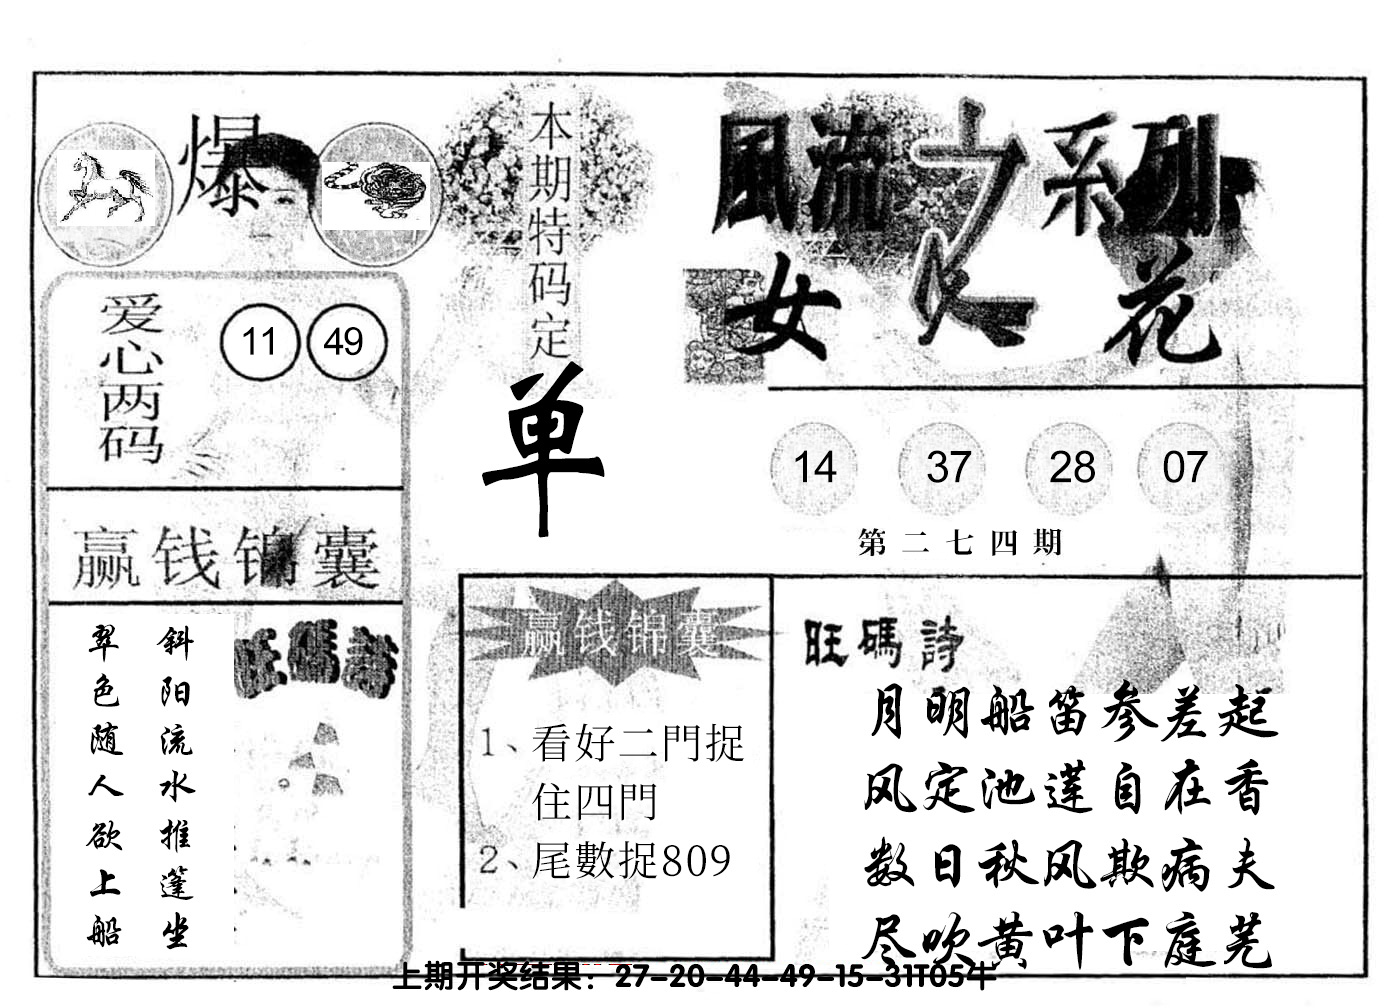 爆
爱心两码
11 49
赢钱锦囊
斜阳流水推篷坐
翠色随人欲上船
旺碼詩
本期特码定
单
風流之系列
女人花
14 37 28 07
第二七四期
赢钱锦囊
1、看好二門捉
住四門
2、尾數捉809
旺碼詩
月明船笛参差起
风定池莲自在香
数日秋风欺病夫
尽吹黄叶下庭芜
上期开奖结果：27-20-44-49-15-31T05牛